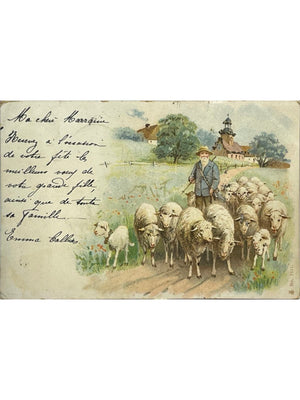 Ma chère Marraine
Recevez à l'occasion
de votre fête les
meilleurs vœux de
votre grande fille
ainsi que de toute
sa famille
Emma